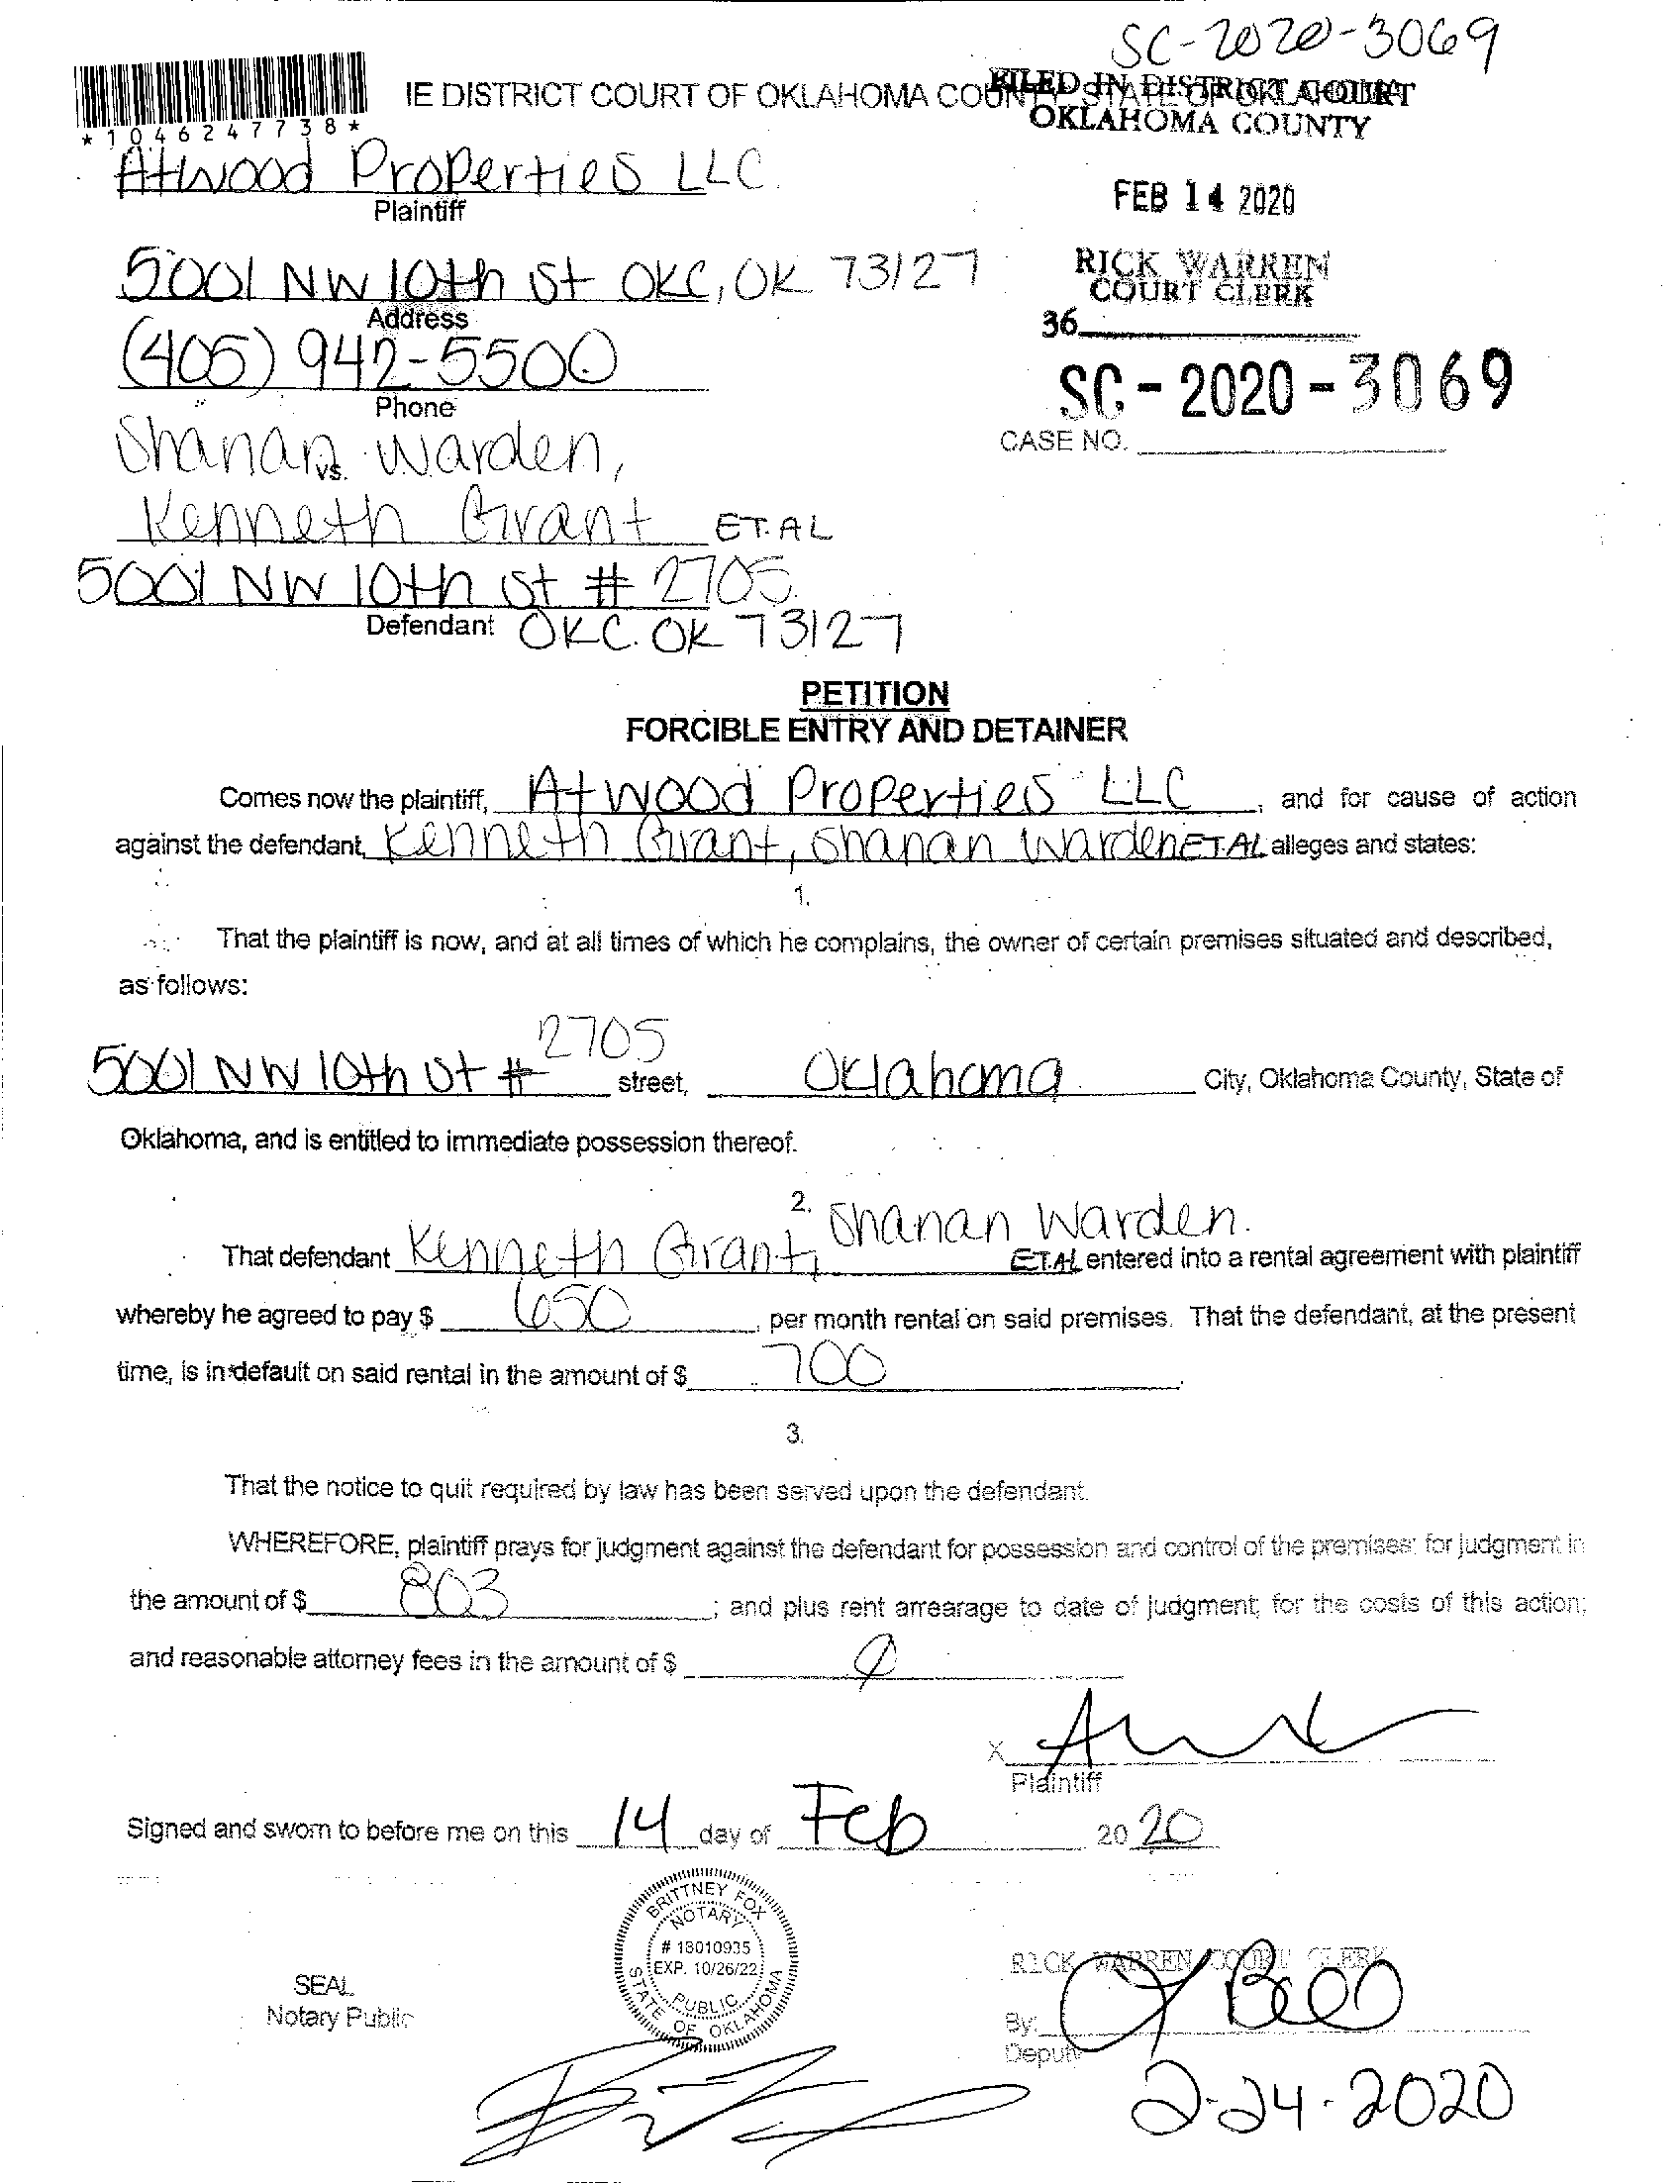 SC-2020-3069
IE DISTRICT COURT OF OKLAHOMA COUNTY, STATE OF OKLAHOMA
FILED IN DISTRICT COURT
OKLAHOMA COUNTY
*1046247738*
Atwood Properties LLC.
Plaintiff
FEB 14 2020
5001 NW 10th St OKC, OK 73127
Address
RICK WARREN
COURT CLERK
36
(405) 942-5500
Phone
SC-2020-3069
CASE NO.
Shanan Warden,
vs.
Kenneth Grant ET.AL
5001 NW 10th St # 2705
Defendant OKC. OK 73127
PETITION
FORCIBLE ENTRY AND DETAINER
Comes now the plaintiff, Atwood Properties LLC, and for cause of action
against the defendant, Kenneth Grant, Shanan Warden ET.AL alleges and states:
1.
That the plaintiff is now, and at all times of which he complains, the owner of certain premises situated and described,
as follows:
5001 NW 10th St # 2705 street, Oklahoma City, Oklahoma County, State of
Oklahoma, and is entitled to immediate possession thereof.
2.
That defendant Kenneth Grant, Shanan Warden. ET.AL entered into a rental agreement with plaintiff
whereby he agreed to pay $ 650, per month rental on said premises. That the defendant, at the present
time, is in default on said rental in the amount of $ 700.
3.
That the notice to quit required by law has been served upon the defendant.
WHEREFORE, plaintiff prays for judgment against the defendant for possession and control of the premises: for judgment in
the amount of $ 803; and plus rent arrearage to date of judgment; for the costs of this action;
and reasonable attorney fees in the amount of $
X
Plaintiff
Signed and sworn to before me on this 14 day of Feb 2020
BRITTNEY FOX
NOTARY
# 18010935
EXP. 10/26/22
PUBLIC
STATE OF OKLAHOMA
SEAL
Notary Public
RICK WARREN COURT CLERK
By:
Deputy
2-24-2020